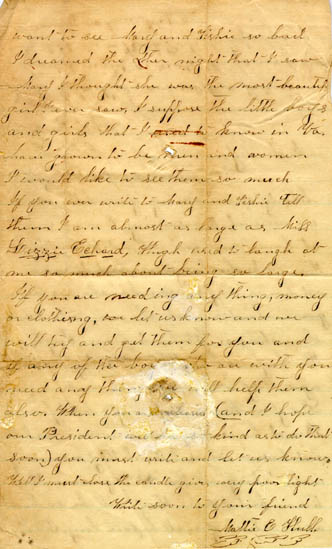 want to see Mary and Kishie so bad
I dreamed the other night that I saw
Mary I thought she was the most beautiful
girl I ever saw, I suppose the little boys
and girls that I used to know in Va
have grown to be men and women
I would like to see them so much
If you ever write to Mary and Kishie tell
them I am almost as large as Miss
Lizzie Echard, Hugh used to laugh at
me so much about being so large,
If you are needing any thing, money
or clothing, let us know and we
will try and get them for you and
if any of the boys are with you
need any thing we will help them
also. When you are (and I hope
our President will be so kind as to do that
soon) you must write and let us know,
Well I must close the candle gives very poor light
Write soon to your friend
Mattie C